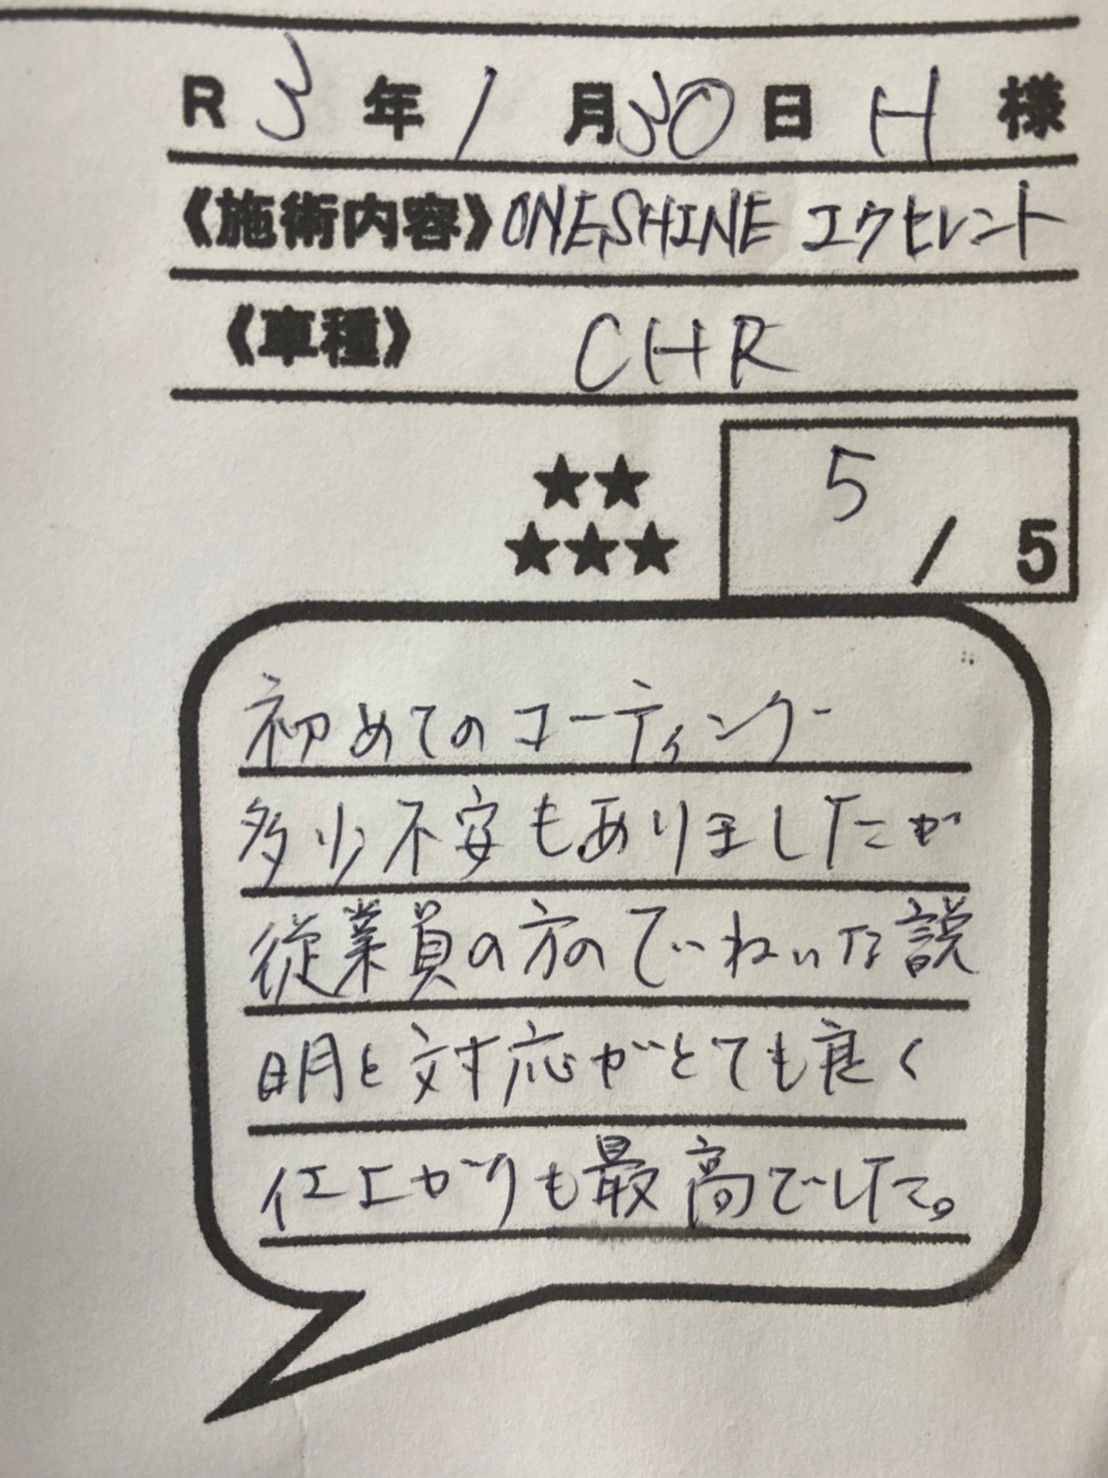 R 3 年 1 月 30 日 H 様
《施術内容》 ONESHINE エクセレント
《車種》 CHR
★★
★★★
5 / 5
初めてのコーティング
多少不安もありましたが
従業員の方のていねいな説
明と対応がとても良く
仕上がりも最高でした。